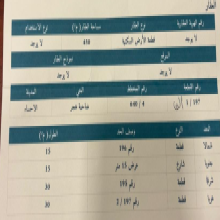 العقار
رقم الهوية العقارية نوع العقار مساحة العقار (م٢) نوع الاستخدام
لا يوجد قطعة الأرض السكنية 450 لا يوجد
الموقع نموذج العقار
لا يوجد لا يوجد
رقم القطعة رقم المخطط الحي المدينة
1 / 197 4 / 600 ضاحية هجر الاحساء
الحد النوع وصف الحد الطول (م)
شمالا قطعة رقم 196 15
جنوبا شارع عرض 15 متر 15
شرقا قطعة رقم 195 30
غربا قطعة رقم 197 / 2 30